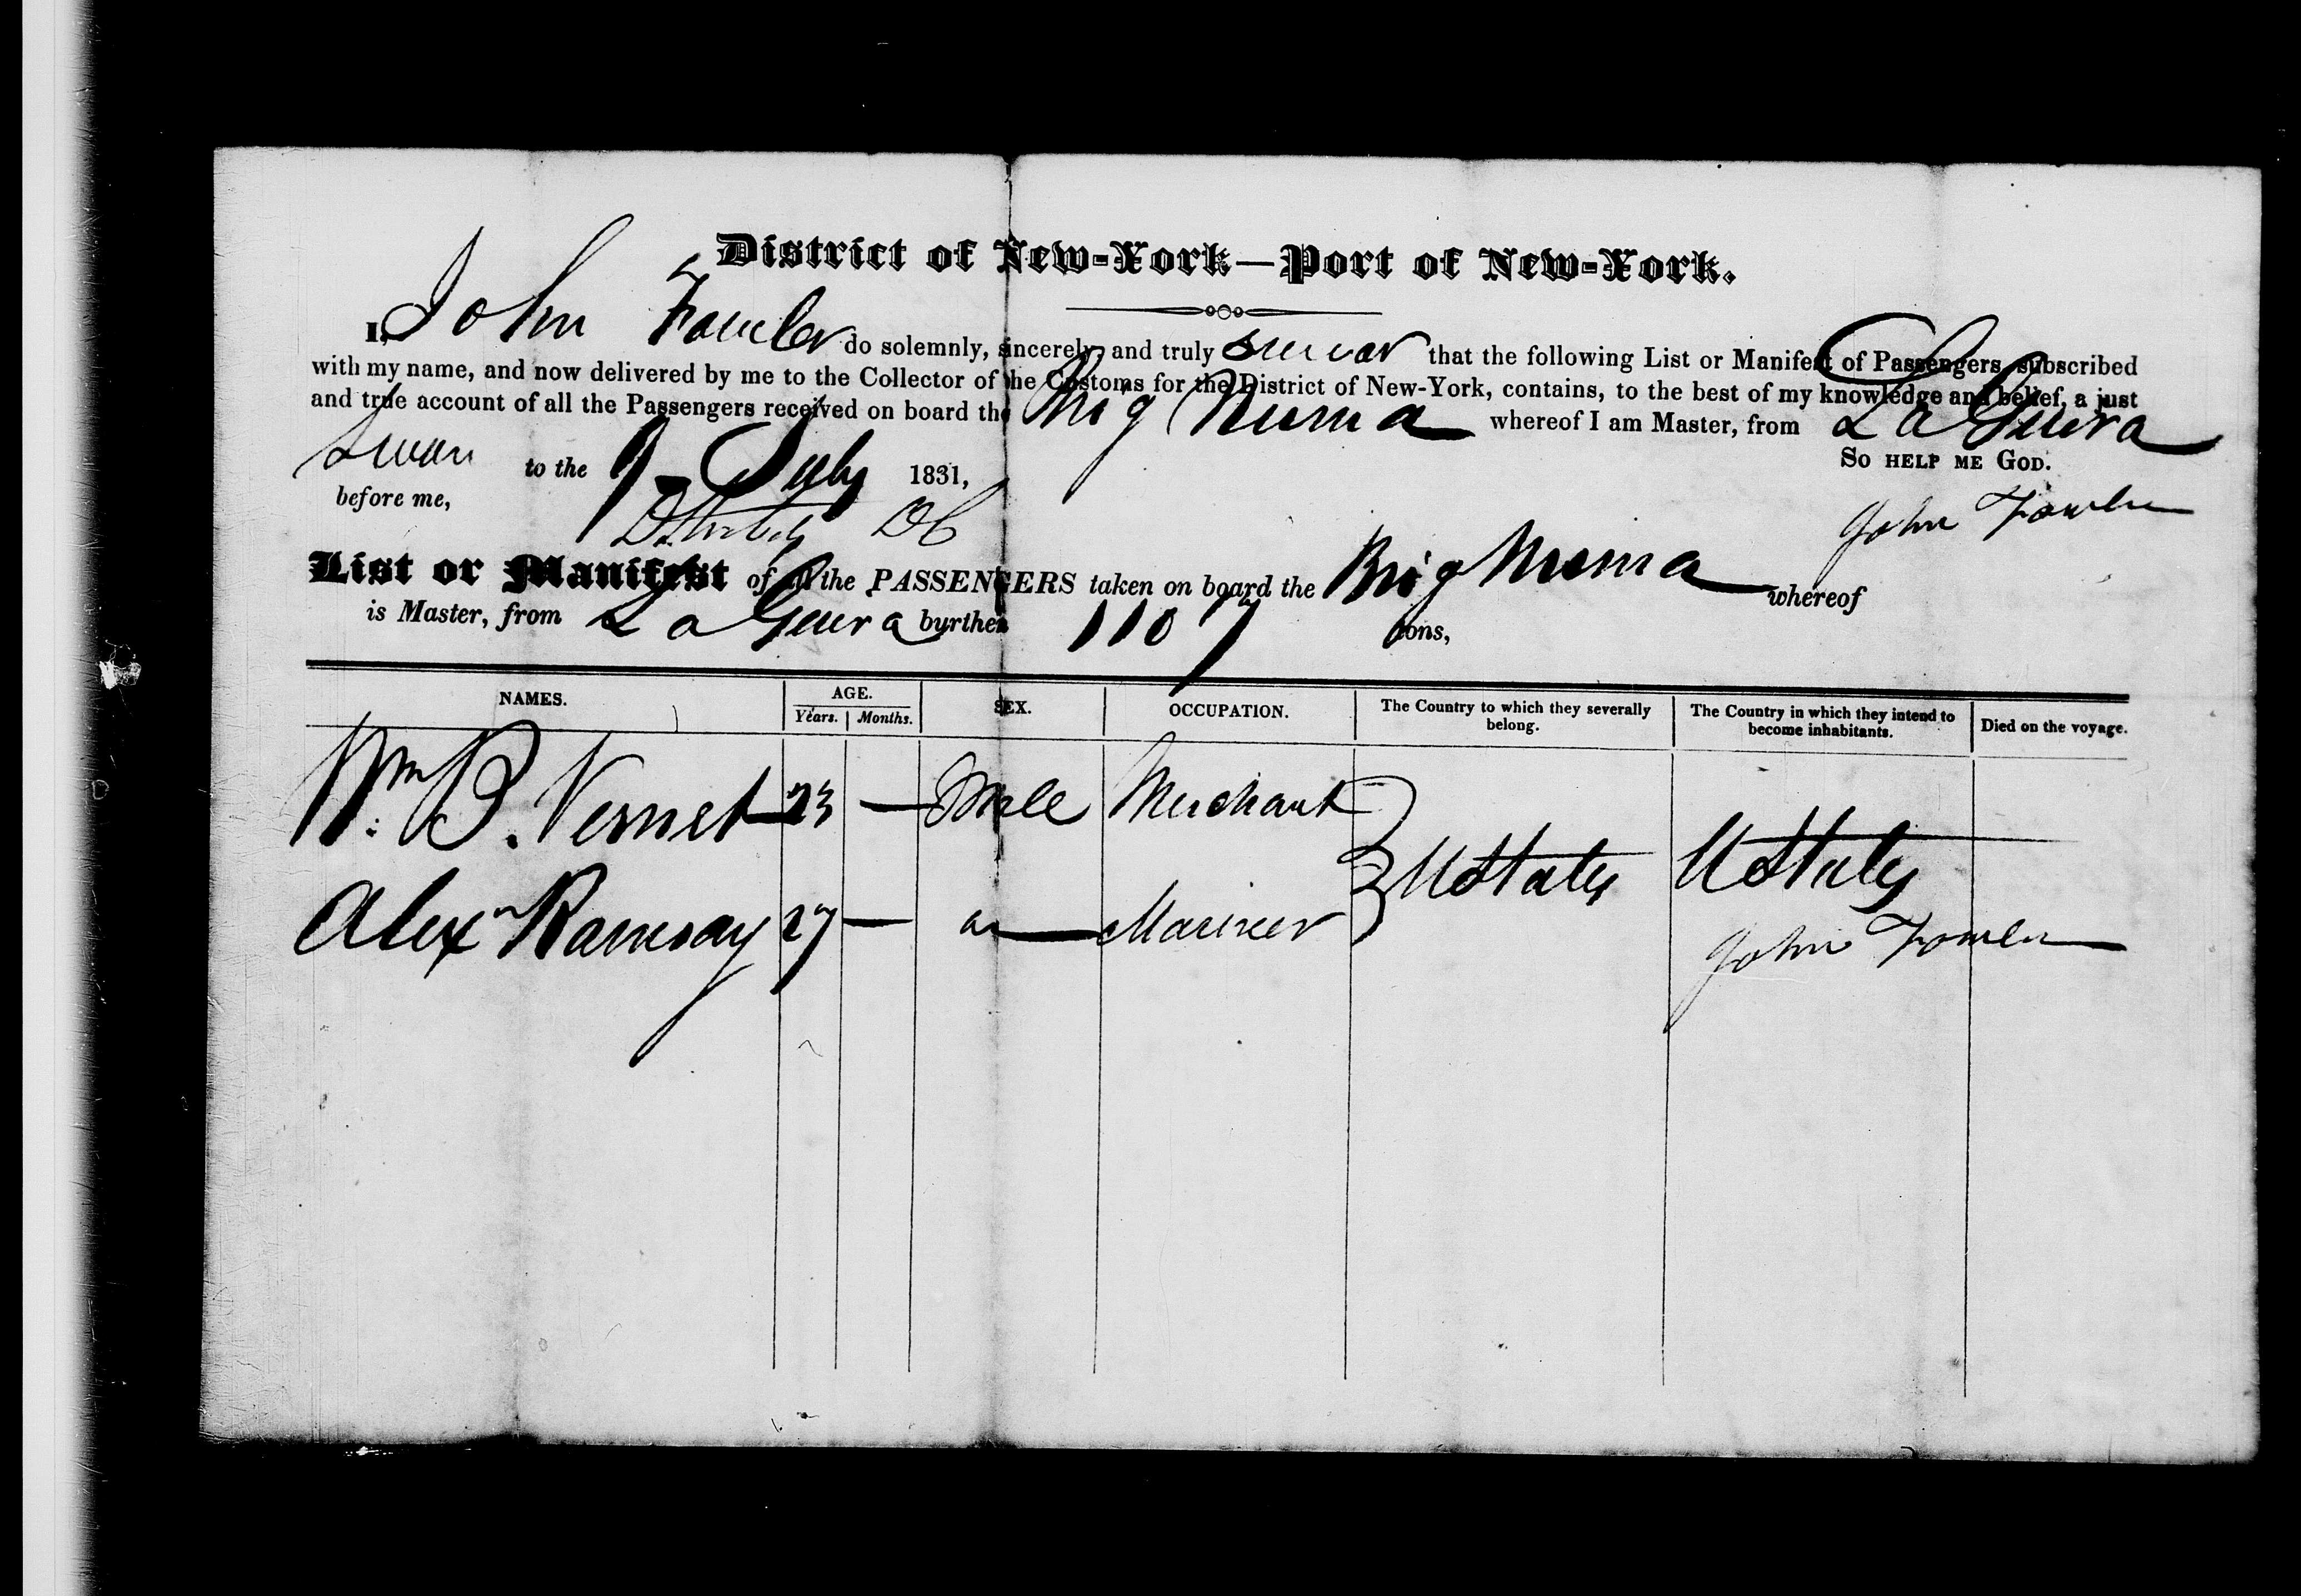 District of New-York—Port of New-York.
I, John Fowler do solemnly, sincerely, and truly swear that the following List or Manifest of Passengers, subscribed
with my name, and now delivered by me to the Collector of the Customs for the District of New-York, contains, to the best of my knowledge and belief, a just
and true account of all the Passengers received on board the Brig Numa whereof I am Master, from La Guira
Sworn to the 9 July 1831, So HELP ME GOD.
before me, John Fowler
List or Manifest of all the PASSENGERS taken on board the Brig Numa whereof
is Master, from La Guira burthen 110 tons,
NAMES. AGE. SEX. OCCUPATION. The Country to which they severally belong. The Country in which they intend to become inhabitants. Died on the voyage.
Years. Months.
Wm B. Vernet 23 — Male Merchant
U States U States
Alexr Ramsay 27 — Mariner
John Fowler